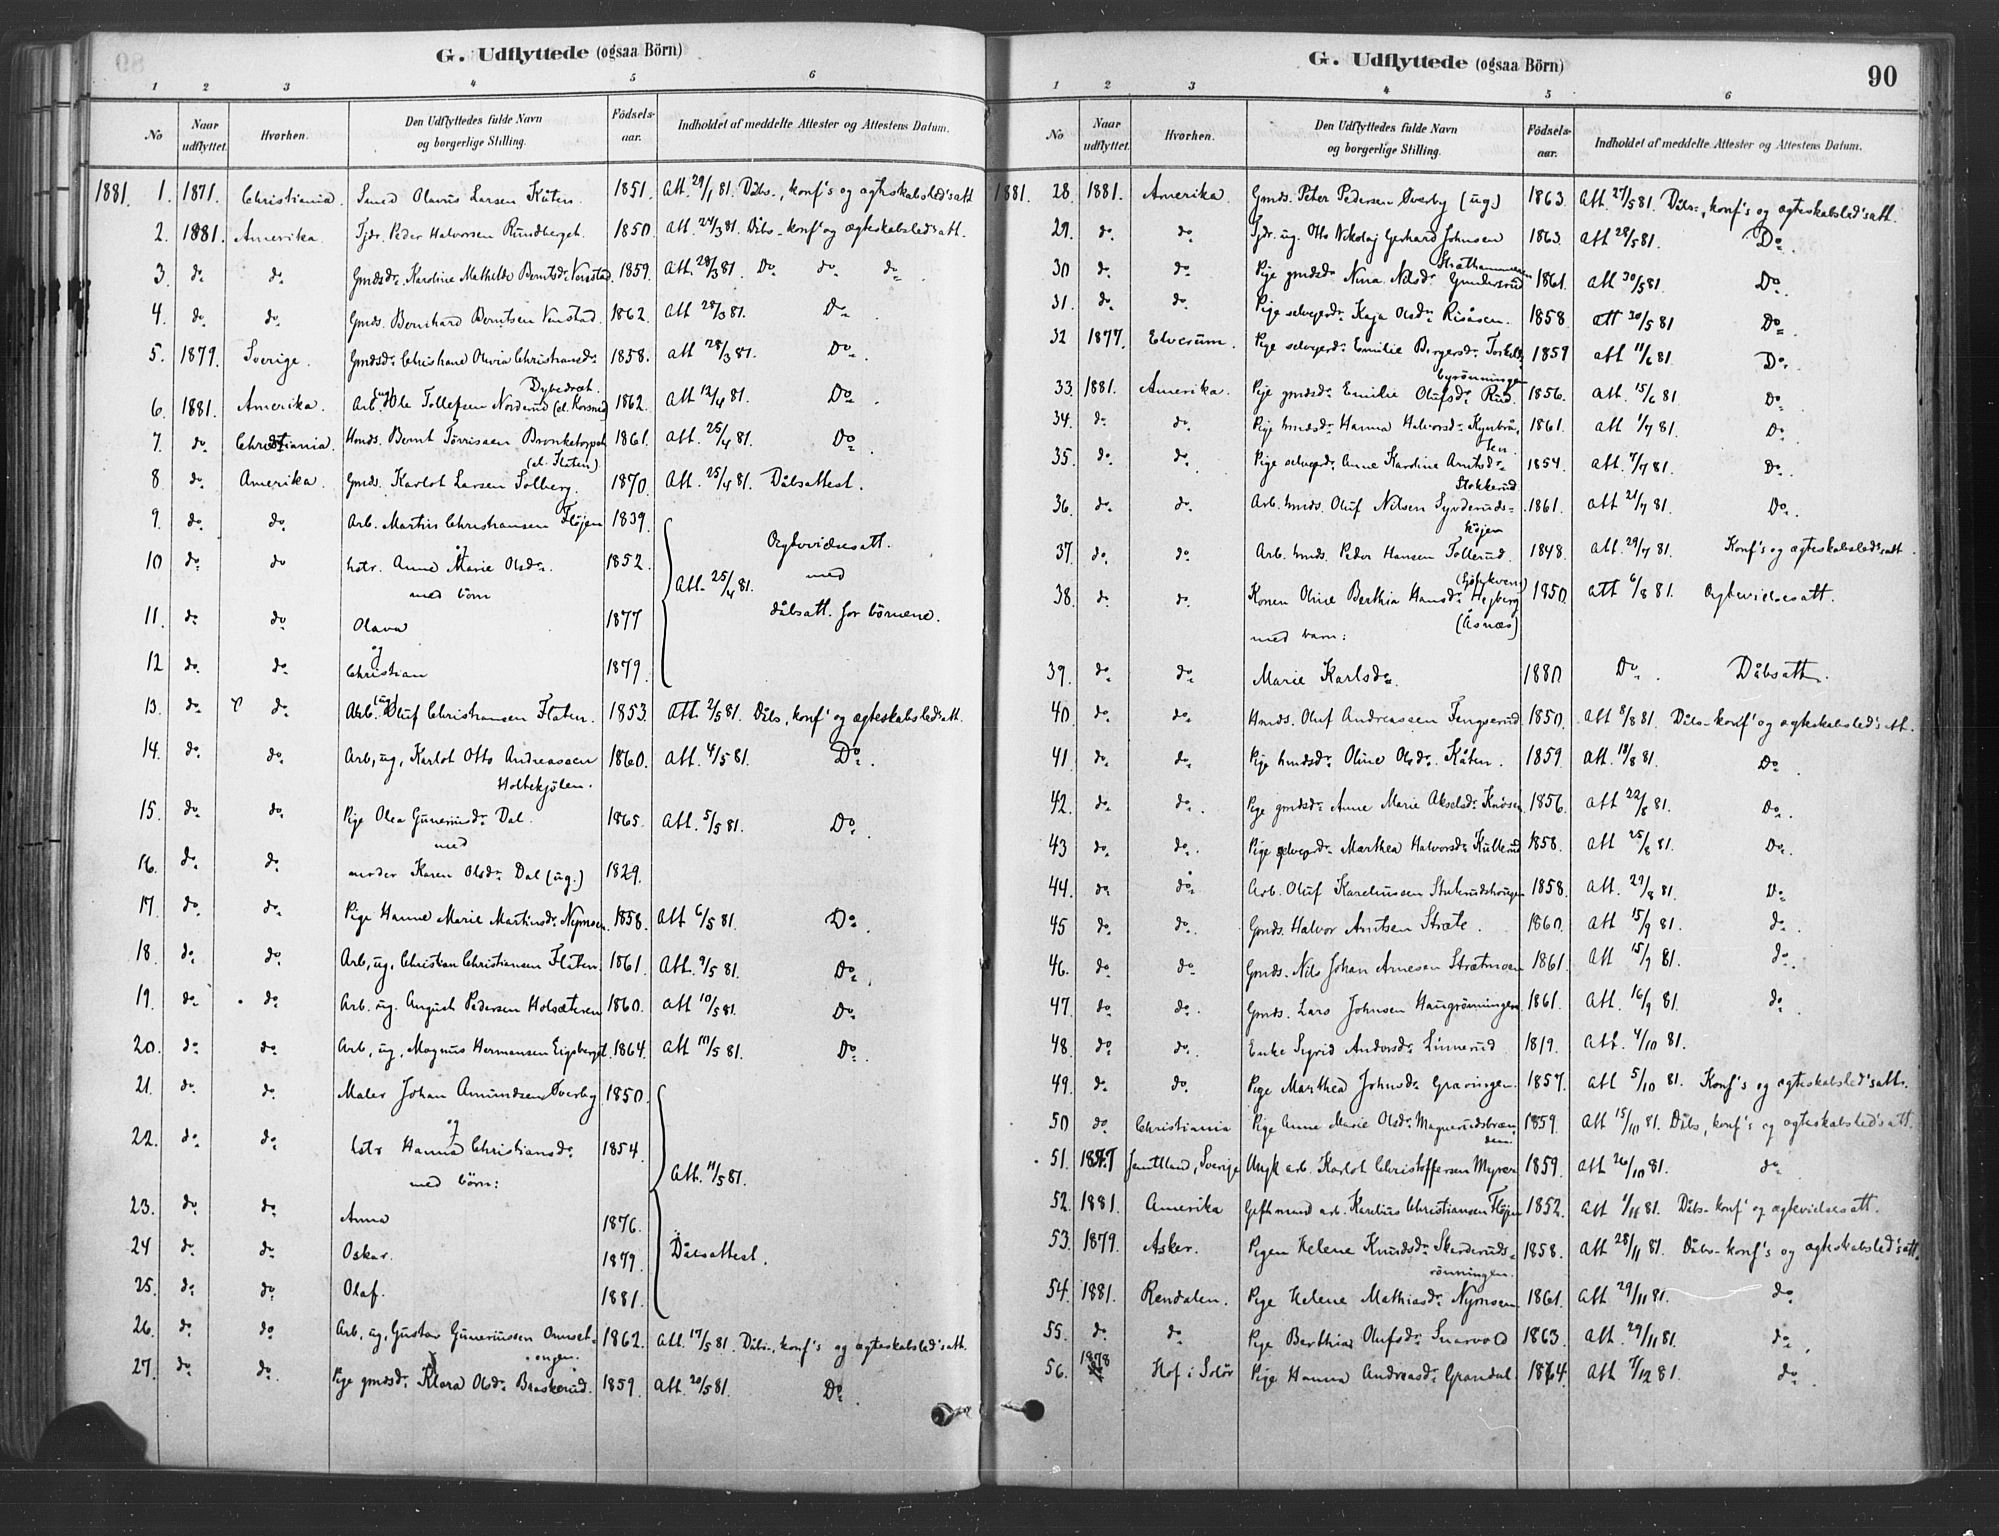 G. Udflyttede (ogsaa Börn)
1 2 3 4 5 6
No Naar udflyttet. Hvorhen. Den Udflyttedes fulde Navn og borgerlige Stilling. Fødsels-aar. Indholdet af meddelte Attester og Attestens Datum.
1881. 1. 1871. Christiania. Smed Olavus Larsen Kåten. 1851. Att. 29/1 81. Dåbs-, konf's og ægteskabsled'satt.
2. 1881. Amerika. Tjdr. Peder Halvorsen Rundberget. 1850. Att. 24/3 81. Dåbs- konf' og ægteskabsledsatt.
3. do. do. Gmdsdr. Karoline Mathilde Berntsdr. Venstad. 1859. Att. 28/3 81. Do do do.
4. do. do. Gmds. Bernhard Berntsen Venstad. 1862. Att 28/3 81. Do.
5. 1879. Sverige. Gmdsdr. Christiane Olivia Christiansdr. 1858. Att 28/3 81. Do.
Dybedræt.
6. 1881. Amerika. Arb. (ug) Ole Tollefsen Norderud (el. Korsmo) 1862. Att 12/4 81. Do.
7. do. Christiania. Hmds. Bernt Törrissen Bronketorpet 1861. Att. 25/4 81. Do.
(el. Flaten)
8. do. Amerika. Gmds. Karlot Larsen Solberg. 1870. Att. 25/4 81. Dåbsattest.
9. do. do. Arb. Martin Christiansen Fløjen 1839.
og
10 do. do hstr. Anne Marie Olsdr. 1852. Att. 25/4 81. Ægtevidsesatt. med dåbsatt. for börnene.
med börn
11. do. do Olava 1877
og
12 do. do. Christian 1879.
13. do. do. Arb. (ug) Oluf Christiansen Flaten. 1853. Att. 2/5 81. Dåbs, konf' og ægteskabsledsatt.
14. do. do. Arb, ug, Karlot Otto Andreassen 1860. Att. 4/5 81. Do.
Holtekjölen.
15 do. do. Pige Olea Gunerusdr. Dal. 1865. Att. 5/5 81. Do.
med
16. do. do moder Karen Olsdr. Dal (ug.) 1829.
17 do. do. Pige Hanne Marie Martinsdr. Nymoen. 1858. Att 6/5 81. Do.
18. do. do. Arb, ug, Christian Christiansen Flaten. 1861. Att. 9/5 81. Do.
19. do. do. Arb. ug. August Pedersen Holsæteren 1860. Att 10/5 81. Do.
20. do. do. Arb, ug, Magnus Hermansen Eigsberget. 1864. Att 11/5 81. Do.
21. do. do. Maler Johan Amundsen Øverby 1850.
og
22. do. do. hstr Hanna Christiansdr. 1854. Att. 11/5 81.
med börn:
23. do. do. Anna 1876.
24 do. do. Oskar. 1879. Dåbsattest.
25. do. do. Olaf. 1881.
26. do. do. Arb, ug, Gustav Gunerussen Omset- 1862. Att. 17/5 81. Dåbs-, konf's og ægteskabsled'satt.
engen.
27. do. do. Pige gmdsdr. Klara Olsdr. Braskerud. 1859. Att. 20/5 81. Do.
G. Udflyttede (ogsaa Börn) 90
1 2 3 4 5 6
No Naar udflyttet. Hvorhen. Den Udflyttedes fulde Navn og borgerlige Stilling. Fødsels-aar. Indholdet af meddelte Attester og Attestens Datum.
1881. 28. 1881. Amerika. Gmds. Peter Pedersen Øverby (ug.) 1863. Att. 27/5 81. Dåbs-, konf's og ægteskabsled'satt.
29. do. do. Tjdr. ug. Otto Nikolaj Gerhard Johnsen 1863. Att 28/5 81. Do.
Stræthammeren
30 do. do. Pige gmdsdr. Nina Nilsdr. Gundersrud 1861. Att 30/5 81. Do.
31. do. do. Pige selvejerdr. Kaja Olsdr. Risåsen. 1858. Att 30/5 81 Do
32 1877. Elverum. Pige selvejerdr. Emilie Birgersdr. Torkels- 1859 Att 11/6 81. Do.
byrönningen
33. 1881. Amerika. Pige gmdsdr. Emilie Olufsdr. Rud. 1856. Att. 15/6 81. Do
34. do. do. Pige hmdsdr. Hanna Halvorsdr. Kynbrå- 1861. Att 1/7 81. Do.
ten.
35. do. do. Pige selvejerdr. Anne Karoline Arntsdr. 1854. Att. 7/7 81. Do.
Stokkerud.
36. do. do. Arb. hmds. Oluf Nilsen Syverud- 1861. Att 21/7 81. Do.
højen
37. do. do. Arb. hmds. Peder Hansen Tollerud. 1848. Att. 29/7 81. Konf's og ægteskabsled'satt.
38. do. do. Konen Oline Berthia Hansdr. Hejberg 1850. Att 6/8 81. Ægtevidsesatt.
med barn: (Åsnæs)
39. do. do. Marie Karlsdr. 1880 Do. Dåbsatt.
40. do. do. Hmds. Oluf Andreassen Fengserud 1850. Att 8/8 81. Dåbs- konf' og ægteskabsled's att.
41 do. do. Pige hmdsdr. Oline Olsdr. Kåten. 1859. Att. 18/8 81. Do.
42. do. do. Pige gmdsdr. Anne Marie Akselsdr. Knösen 1856. Att 22/8 81. Do.
43 do. do. Pige selvejerdr. Marthea Halvorsdr. Kullerud 1858. Att 25/8 81. Do.
44. do. do. Arb. Oluf Kareliussen Stubrudshougen 1858. Att. 27/8 81. Do
45 do. do. Gmds. Halvor Arntsen Stræte. 1860. Att 15/9 81. do.
46. do. do. Gmds. Nils Johan Arnesen Strætmoen 1861 Att 15/9 81. do.
47. do. do. Gmds. Lars Johnsen Haugrönningen 1861. Att. 16/9 81 do.
48. do. do. Enke Sigrid Andersdr. Linnerud. 1819. Att. 4/10 81.
49. do. do. Pige Marthea Johnsdr. Gravingen. 1857. Att 5/10 81. Konf's og ægteskabsled'satt.
50 do. Christiania Pige Anne Marie Olsdr. Magnerudsbræn- 1859. Att 15/10 81. Dåbs, konf's og ægteskabsled'satt.
den.
51. 1877 Jemtland, Sverige Ungk arb. Karlot Christoffersen Myrer 1859. Att 26/10 81. do.
52. 1881. Amerika Gift mand arb. Karelius Christiansen Fløjen 1852. Att 1/11 81. Dåbs- konf' og ægtevidsesatt.
53. 1879. Asker. Pigen Helene Knudsdr. Skarderuds- 1858. Att 28/11 81. Dåbs- konf's og ægteskabsled'satt.
rönningen.
54. 1881. Rendalen. Pige Helene Mathiasdr. Nymoen. 1861. Att 29/11 81. do.
55. do. do. Pige Berthia Olufsdr. Snarvold 1863. Att. 29/11 81. do.
56. 1878 Hof i Solör Pige Hanna Andreasdr. Grandal. 1864. Att 7/12 81. do.